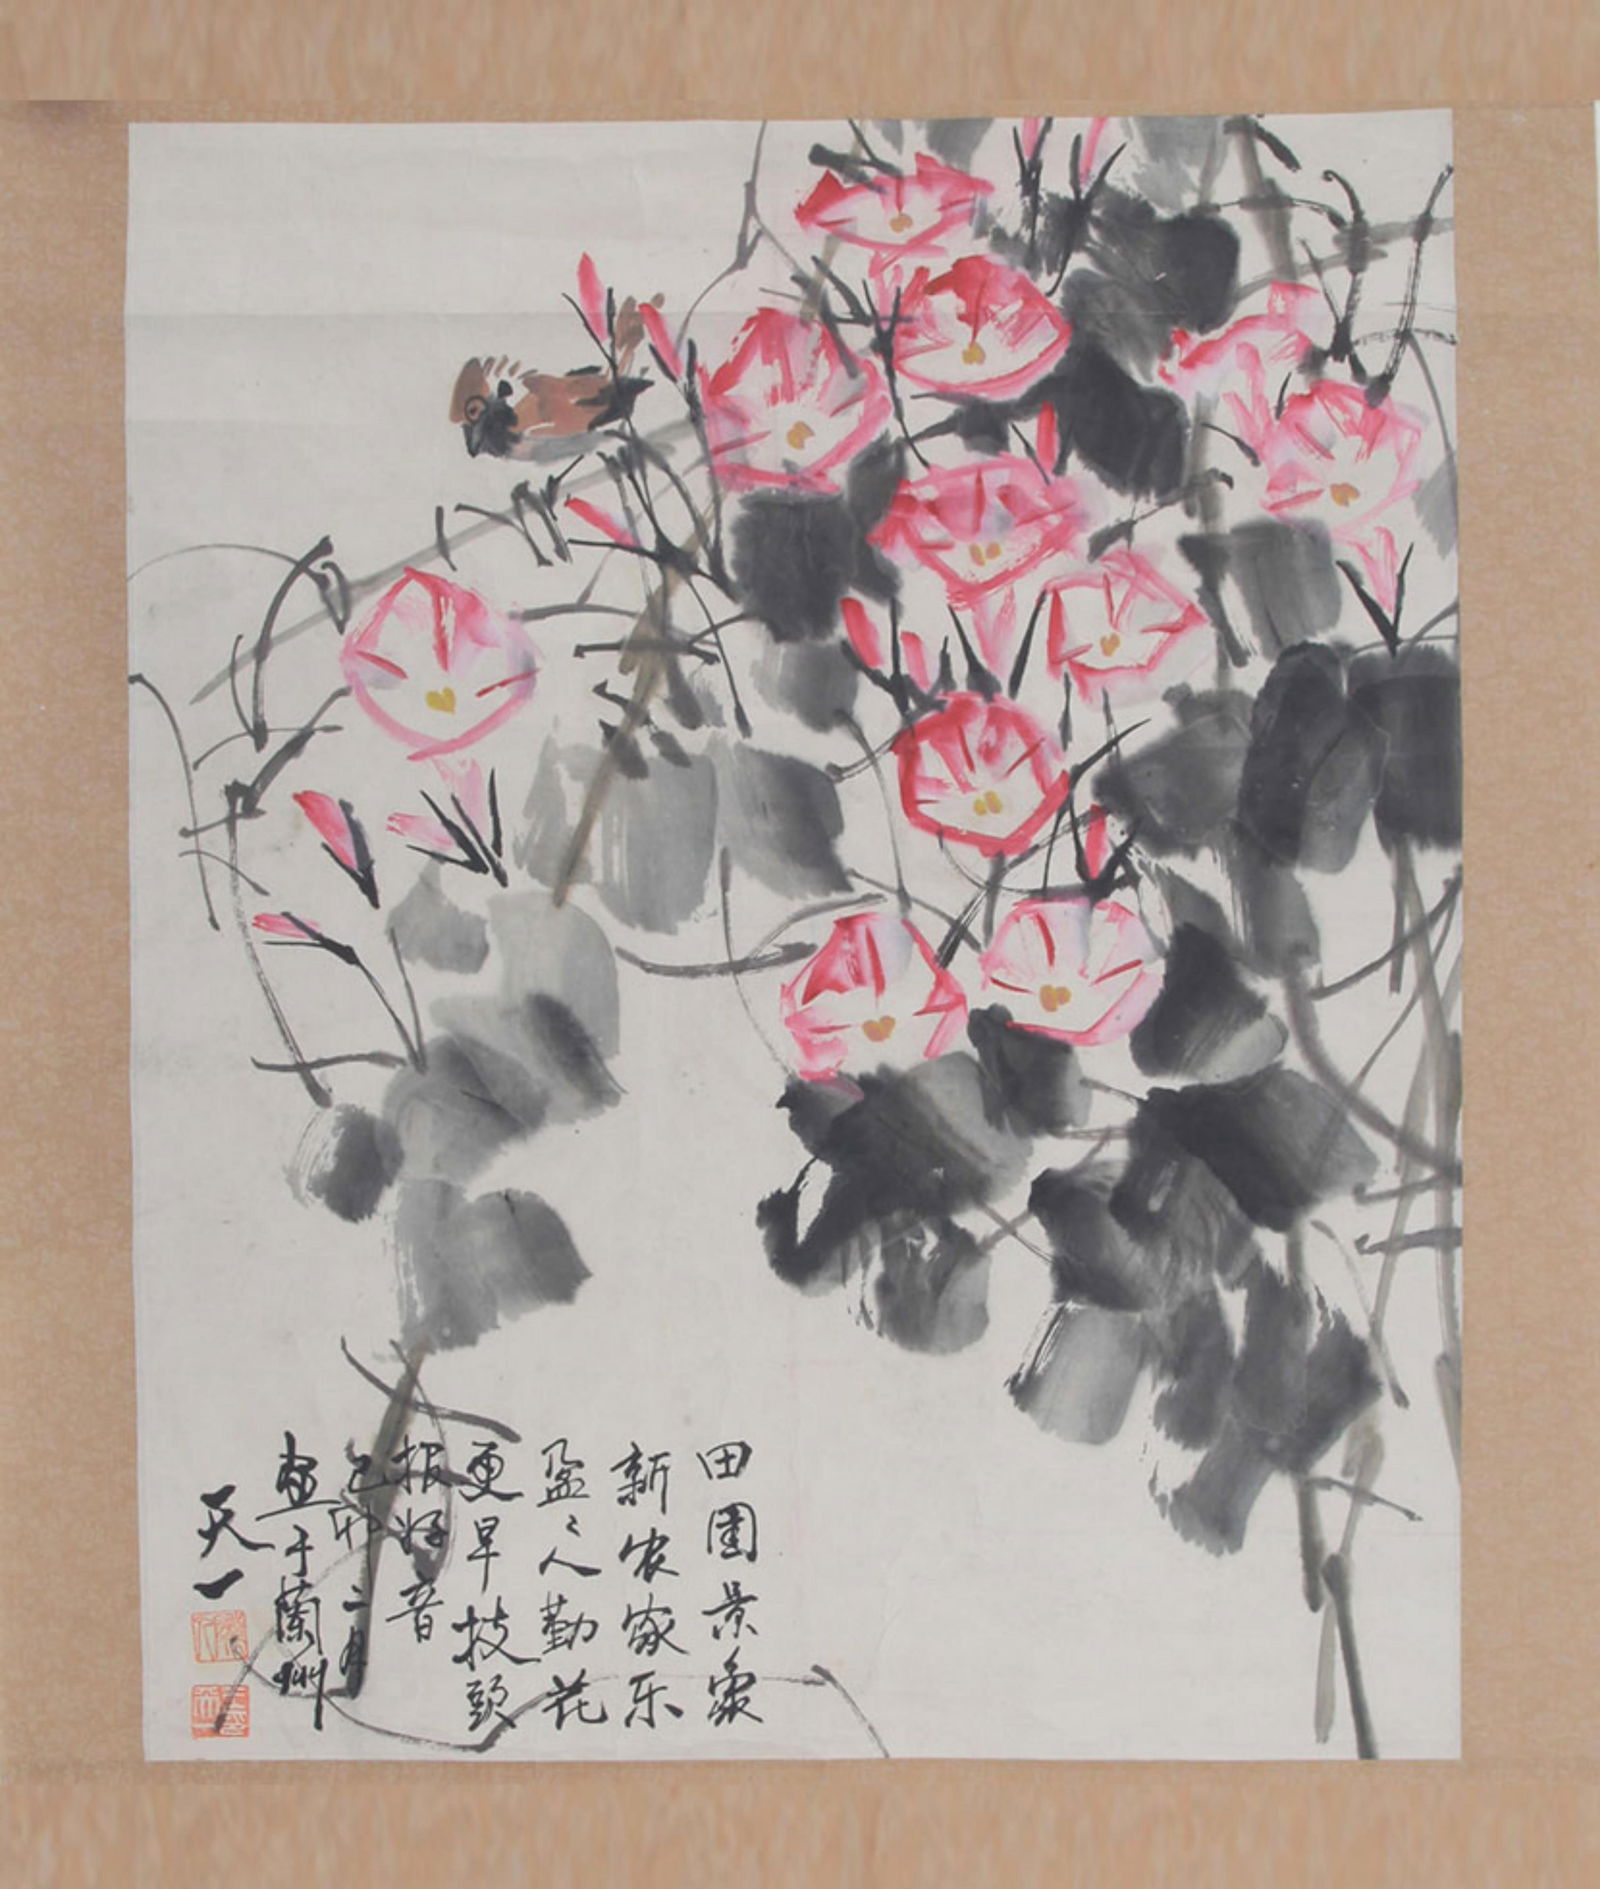 田园景象
新农家乐
盈〻人勤花
更早技頭
报好音
己卯二月
画于蘭州
天一